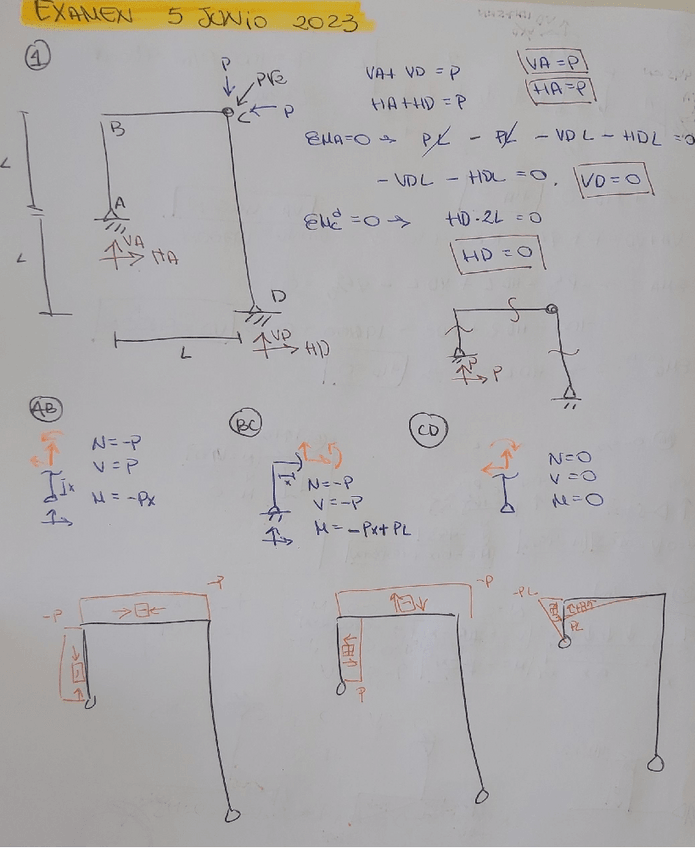 EXAMEN 5 JUNIO 2023
1
P
P√2
P
C
B
A
VA
HA
L
L
L
D
VD
HD
VA + VD = P
VA = P
HA + HD = P
HA = P
ΣMA=0 → PL - PL - VDL - HDL = 0
- VDL - HDL = 0. VD = 0
ΣMcd = 0 → HD·2L = 0
HD = 0
P
P
AB
N = -P
V = P
M = -Px
x
BC
x
N = -P
V = -P
M = -Px + PL
CD
N = 0
V = 0
M = 0
-P
-P
-P
P
-PL
PL